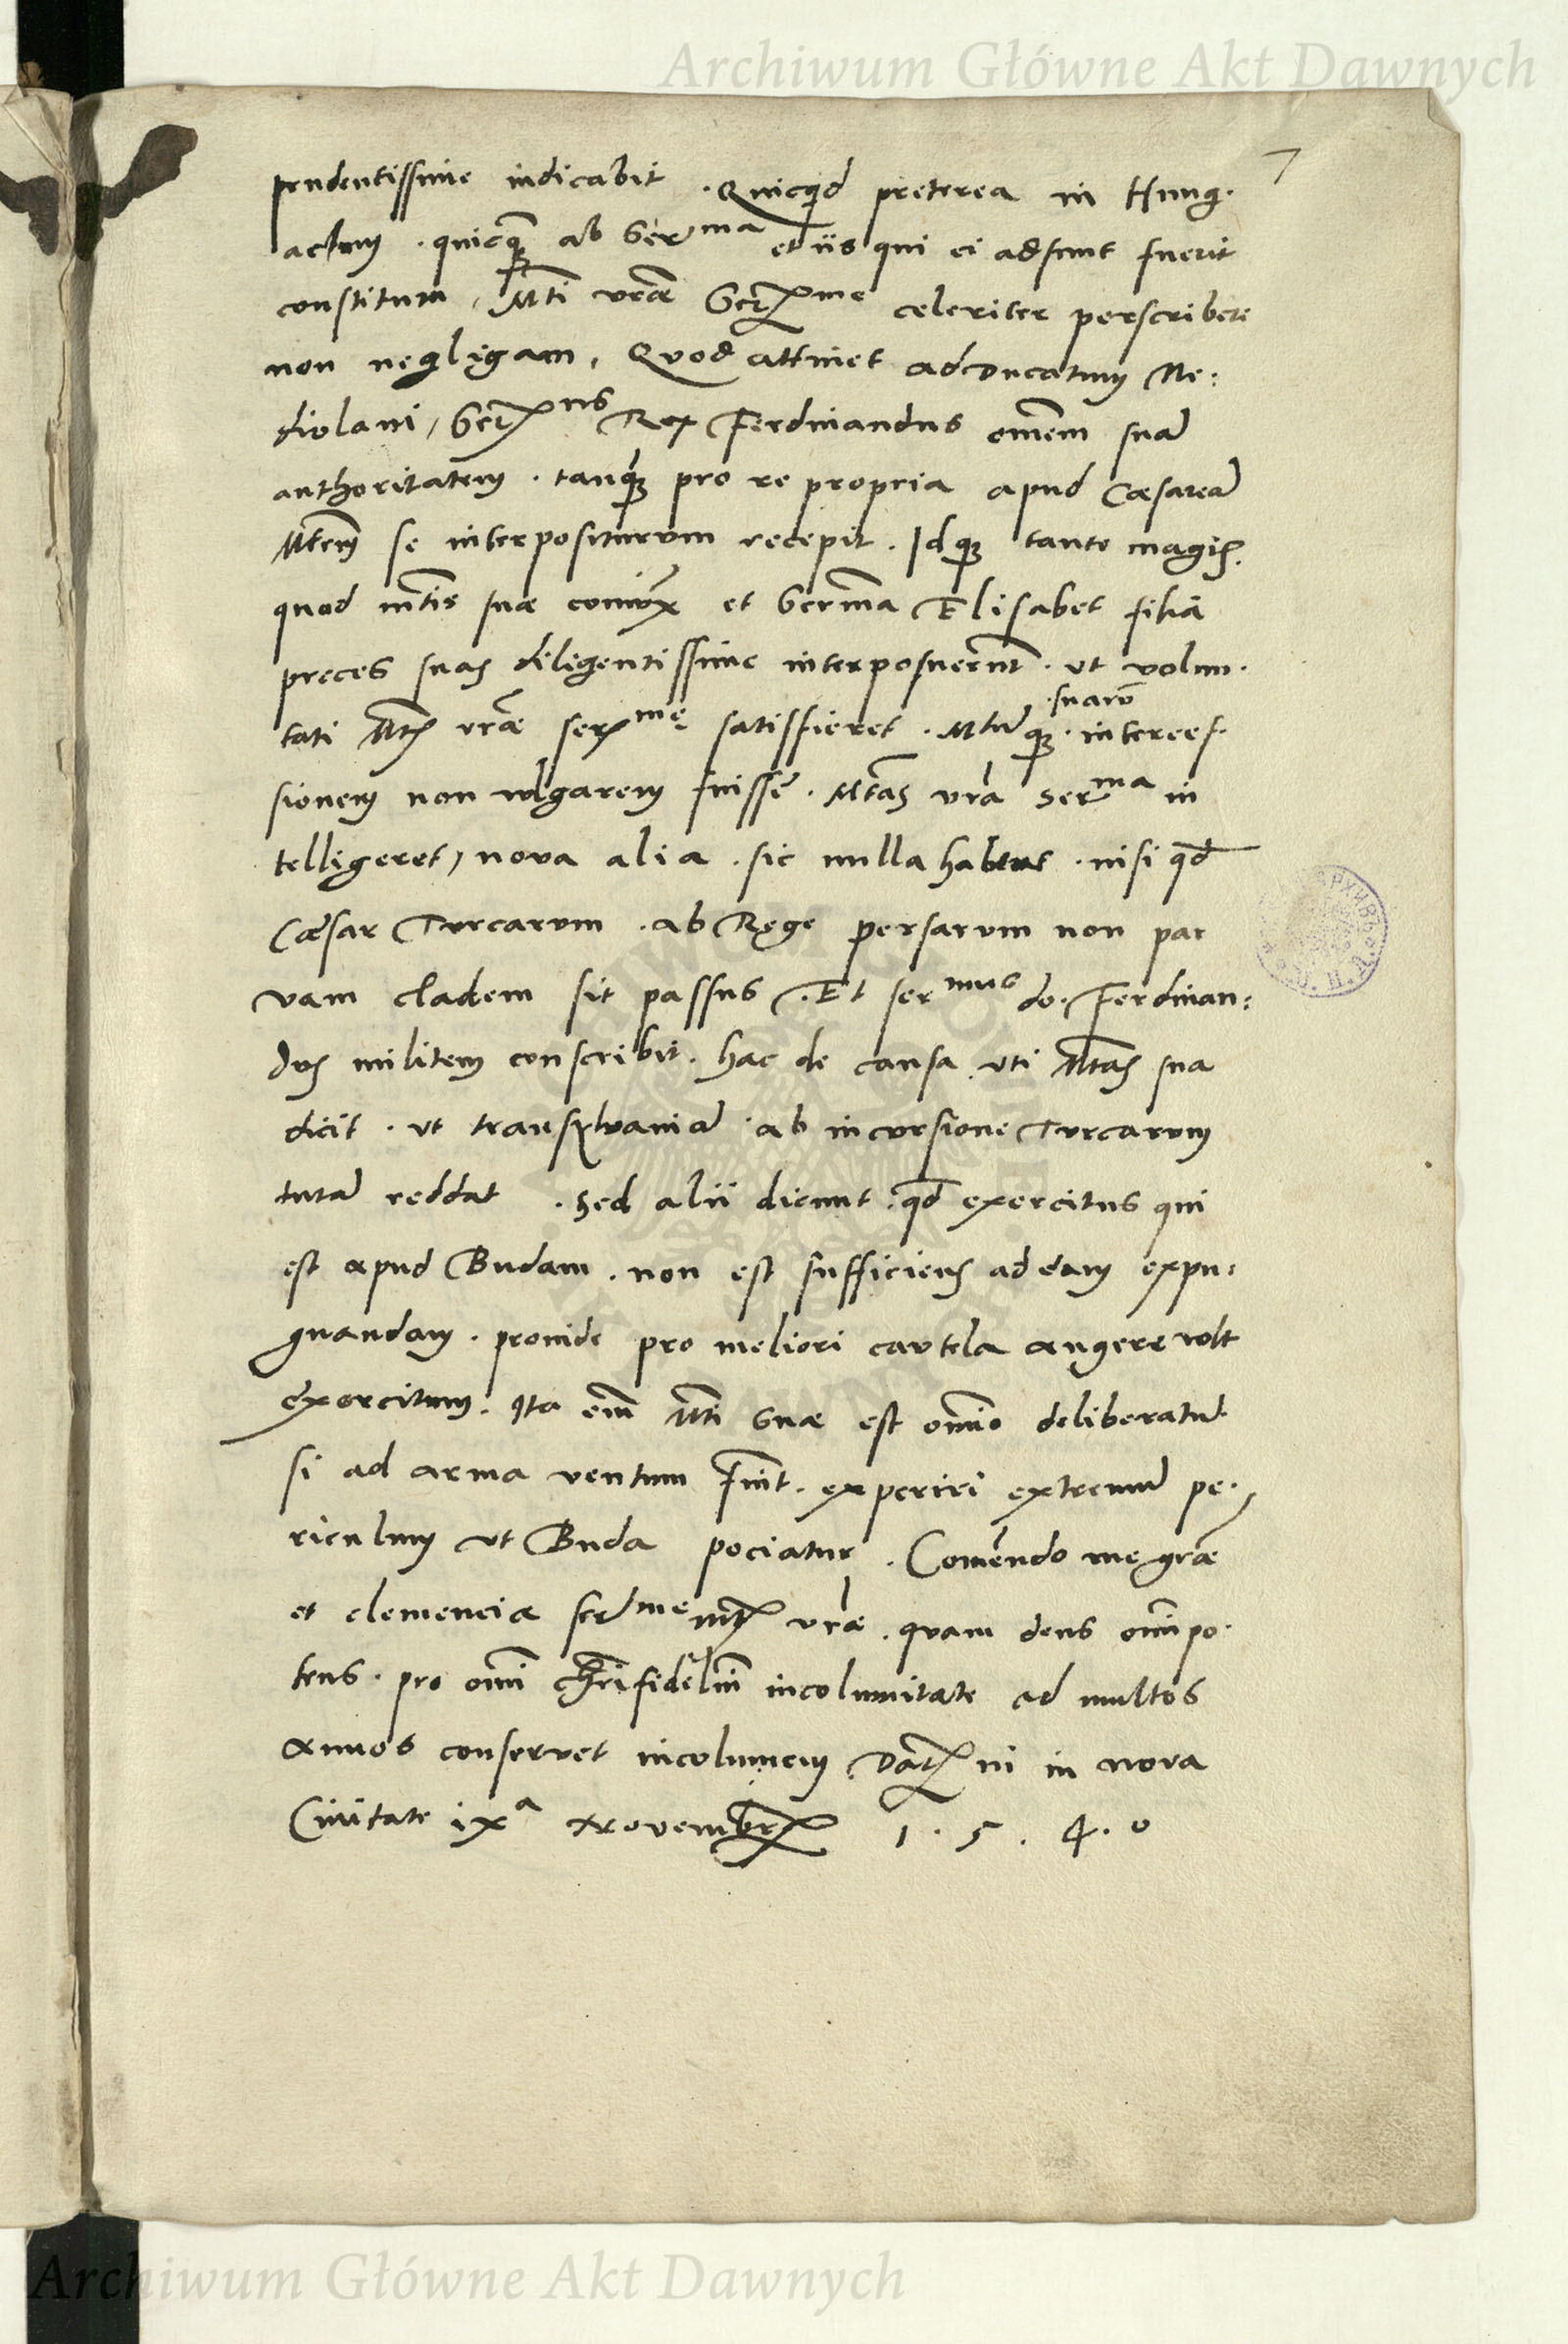 Archiwum Główne Akt Dawnych
7
prudentissime indicabit . Quicqd preterea in Hung.
actum . quicq3 ab Ser ma et iis qui ei adsunt fuerit
constitutũ, Mti vrae Ser me celeriter perscribere
non negligam, Quod attinet ad Ducatum Me:
diolani, Ser us Rex Ferdinandus omẽm suã
authoritatem . tanq3 pro re propria apud Caesareã
Mtem se interpositurum recepit . Idq3 tanto magis.
quod mtis suae coniux et Serma Elisabet filia
preces suas diligentissime interposuerunt . ut volun.
suarũ
tati Mtis vrae ser me satisfieret . Mtũ q3 . interces.
sionem non vulgarem fuisse . Mtas vra Ser ma in
telligeret, nova alia . sic nulla habent . nisi qd
Caesar Turcarum . ab Rege persarum non par
vam cladem sit passus . Et ser mus do. Ferdinan:
dus militem conscribit . hac de causa uti Mtas sua
dicit . ut transylvaniã ab incursione Turcarum
tutã reddat . Sed alii dicunt . qd exercitus qui
est apud Budam . non est sufficiens ad eam expu:
gnandam . proinde pro meliori cautela augere volt
exercitum . Ita em̃ Mti Suae est om̃io deliberatũ.
si ad arma ventum fũit . experiri extremũ pe.
riculum ut Buda pociatur . Com̃endo me grae
et clemencia ser me mtis vrae . quam deus om̃ipo.
tens . pro om̃i chr̃ifideliũ incolumitate ad multos
annos conservet incolumem . Dat in nova
Civitate ix a Novembr 1 . 5 . 4 . 0
Archiwum Główne Akt Dawnych